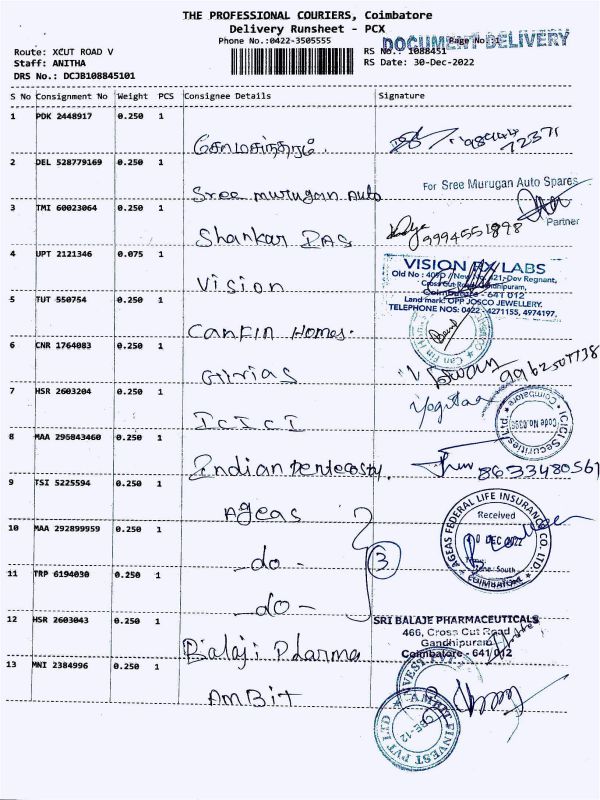 THE PROFESSIONAL COURIERS, Coimbatore
Delivery Runsheet - PCX
Phone No.:0422-3505555
Page No.:1
DOCUMENT DELIVERY
Route: XCUT ROAD V
RS No.: 1088451
Staff: ANITHA
RS Date: 30-Dec-2022
DRS No.: DCJB108845101
S No Consignment No Weight PCS Consignee Details Signature
1 PDK 2448917 0.250 1
சோமசுந்தரம்.
98944 72371
2 DEL 528779169 0.250 1
Sree murugan Auto
For Sree Murugan Auto Spares
Partner
3 TMI 60023064 0.250 1
Shankar DAS
9994551898
4 UPT 2121346 0.075 1
Vision
VISION RX LABS
Cross Cut Road, Gandhipuram,
Coimbatore - 641 012
Land mark: OPP JOSCO JEWELLERY.
TELEPHONE NOS: 0422 - 4271155, 4974197,
5 TUT 550754 0.250 1
CanFin Homes.
6 CNR 1764083 0.250 1
7 HSR 2603204 0.250 1
ICICI
Yogitaa
ICICI Securities Ltd.
Coimbatore
8 MAA 296843460 0.250 1
Indian Pentecosty.
8633480561
9 TSI 5225594 0.250 1
Ageas
AGEAS FEDERAL LIFE INSURANCE CO. LTD.
Received
DEC 2022
Zone: South
COIMBATORE
10 MAA 292899959 0.250 1
-do-
3
11 TRP 6194030 0.250 1
-do-
12 HSR 2603043 0.250 1
Balaji Pharma
SRI BALAJE PHARMACEUTICALS
466, Cross Cut Road
Gandhipuram
Coimbatore - 641 012
13 MNI 2384996 0.250 1
AmBit
AMBIT FINVEST PVT LTD
CBE-12